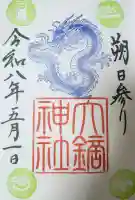 朔日参り
大鏑神社
令和八年五月一日